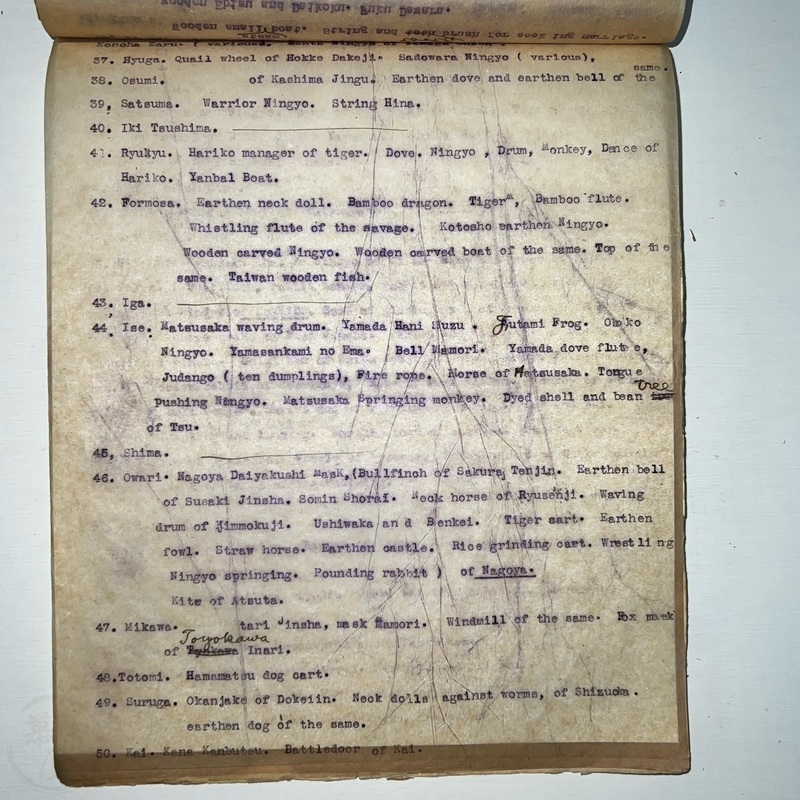 Wooden Ebisu and Daikoku. Fuku Dawara.
Wooden small boat. String and tooth brush for seeking marriage.
37. Hyuga. Quail wheel of Hokke Dakeji. Sadowara Ningyo ( various),
same.
38. Osumi. of Kashima Jingu. Earthen dove and earthen bell of the
39, Satsuma. Warrior Ningyo. String Hina.
40. Iki Tsushima.
41. Ryukyu. Hariko manager of tiger. Dove. Ningyo , Drum, Monkey, Dance of
Hariko. Yanbal Boat.
42. Formosa. Earthen neck doll. Bamboo dragon. Tiger, Bamboo flute.
Whistling flute of the savage. Kotosho earthen Ningyo.
Wooden carved Ningyo. Wooden carved boat of the same. Top of the
same. Taiwan wooden fish.
43. Iga.
44. Ise. Matsusaka waving drum. Yamada Hani Suzu . Futami Frog. Oboko
Ningyo. Yamasankami no Ema. Bell Mamori. Yamada dove flute,
Judango ( ten dumplings), Fire rope. Horse of Matsusaka. Tongue
tree
pushing Ningyo. Matsusaka Springing monkey. Dyed shell and bean
of Tsu.
45, Shima.
46. Owari. Nagoya Daiyakushi Mask,(Bullfinch of Sakura Tenjin. Earthen bell
of Susaki Jinsha. Somin Shorai. Neck horse of Ryusenji. Waving
drum of Jimmokuji. Ushiwaka and Benkei. Tiger cart. Earthen
fowl. Straw horse. Earthen castle. Rice grinding cart. Wrestling
Ningyo springing. Pounding rabbit ) of Nagoya.
Kite of Atsuta.
47. Mikawa. tari Jinsha, mask Mamori. Windmill of the same. Fox mask
Toyokawa
of Inari.
48.Totomi. Hamamatsu dog cart.
49. Suruga. Okanjake of Dokeiin. Neck dolls against worms, of Shizuoka.
earthen dog of the same.
50. Kai. Kana Kanbutsu. Battledoor of Kai.